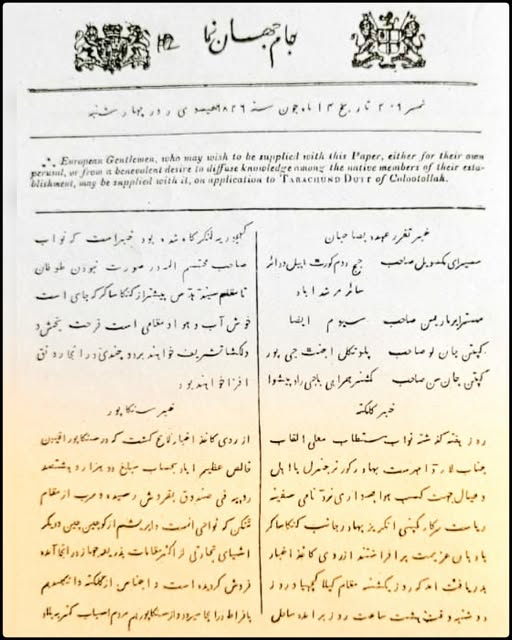 جام جهان نما
نمبر ۲۰۶ تاریخ ۱۴ ماه جون سنه ۱۸۲۶ عیسوی روز چهارشنبه
European Gentlemen, who may wish to be supplied with this Paper, either for their own
perusal, or from a benevolent desire to diffuse knowledge among the native members of their esta-
blishment, may be supplied with it, on application to TARACHUND DUTT of Colootollah.
خبر تقرر عهده بصاحبان
مکسویل صاحب جج دوم کورت اپیل و دائر
سائر مرشد اباد
مستر صاحب سیوم ایضا
کپتن جان لو صاحب پلوتکل اجنت جی پور
کپتن جان سن صاحب کمشنر همراهی باجی راو پیشوا
خبر کلکته
روز هفته گذشته نواب مستطاب معلی القاب
جناب لارد امهرست بهادر گورنر جنرل با اهل
و عیال جهت کسب هوا نامی سفینه
ریاست سرکار کمپنی انگریز بهادر جانب کنکا ساکر
بادبان عزیمت برافراشتند ازروی کاغذ اخبار
بدریافت امد که روز یکشنبه مقام و روز
دوشنبه وقت هشت ساعت روز برامده ساحل
لنگرگاه شده بود خبر است که نواب
صاحب محتشم الیه در صورت نبودن طوفان
تا مقام پیشتر از کنکا ساکر که جای است
خوش آب و هوا و مقامی است فرحت بخش و
دلکشا تشریف خواهند برد و چندی در انجا رونق
افزا خواهند بود
خبر سنکاپور
از روی کاغذ اخبار لایح گشت که در سنکاپور افیون
خالص عظیم اباد بحساب مبلغ دو هزار و هشتصد
روپیه فی صندوق بفروش رسیده و سرب از مقام
که نواحی انست و ابریشم از کوچین چین و دیگر
اشیای تجارتی از اکثر مقامات بذریعه جهاز در انجا آمده
فروش گردیده است و اجناس از کلکته و انگلستان
بافراط در انجا میرود و از سنکاپور هم مردم اسباب